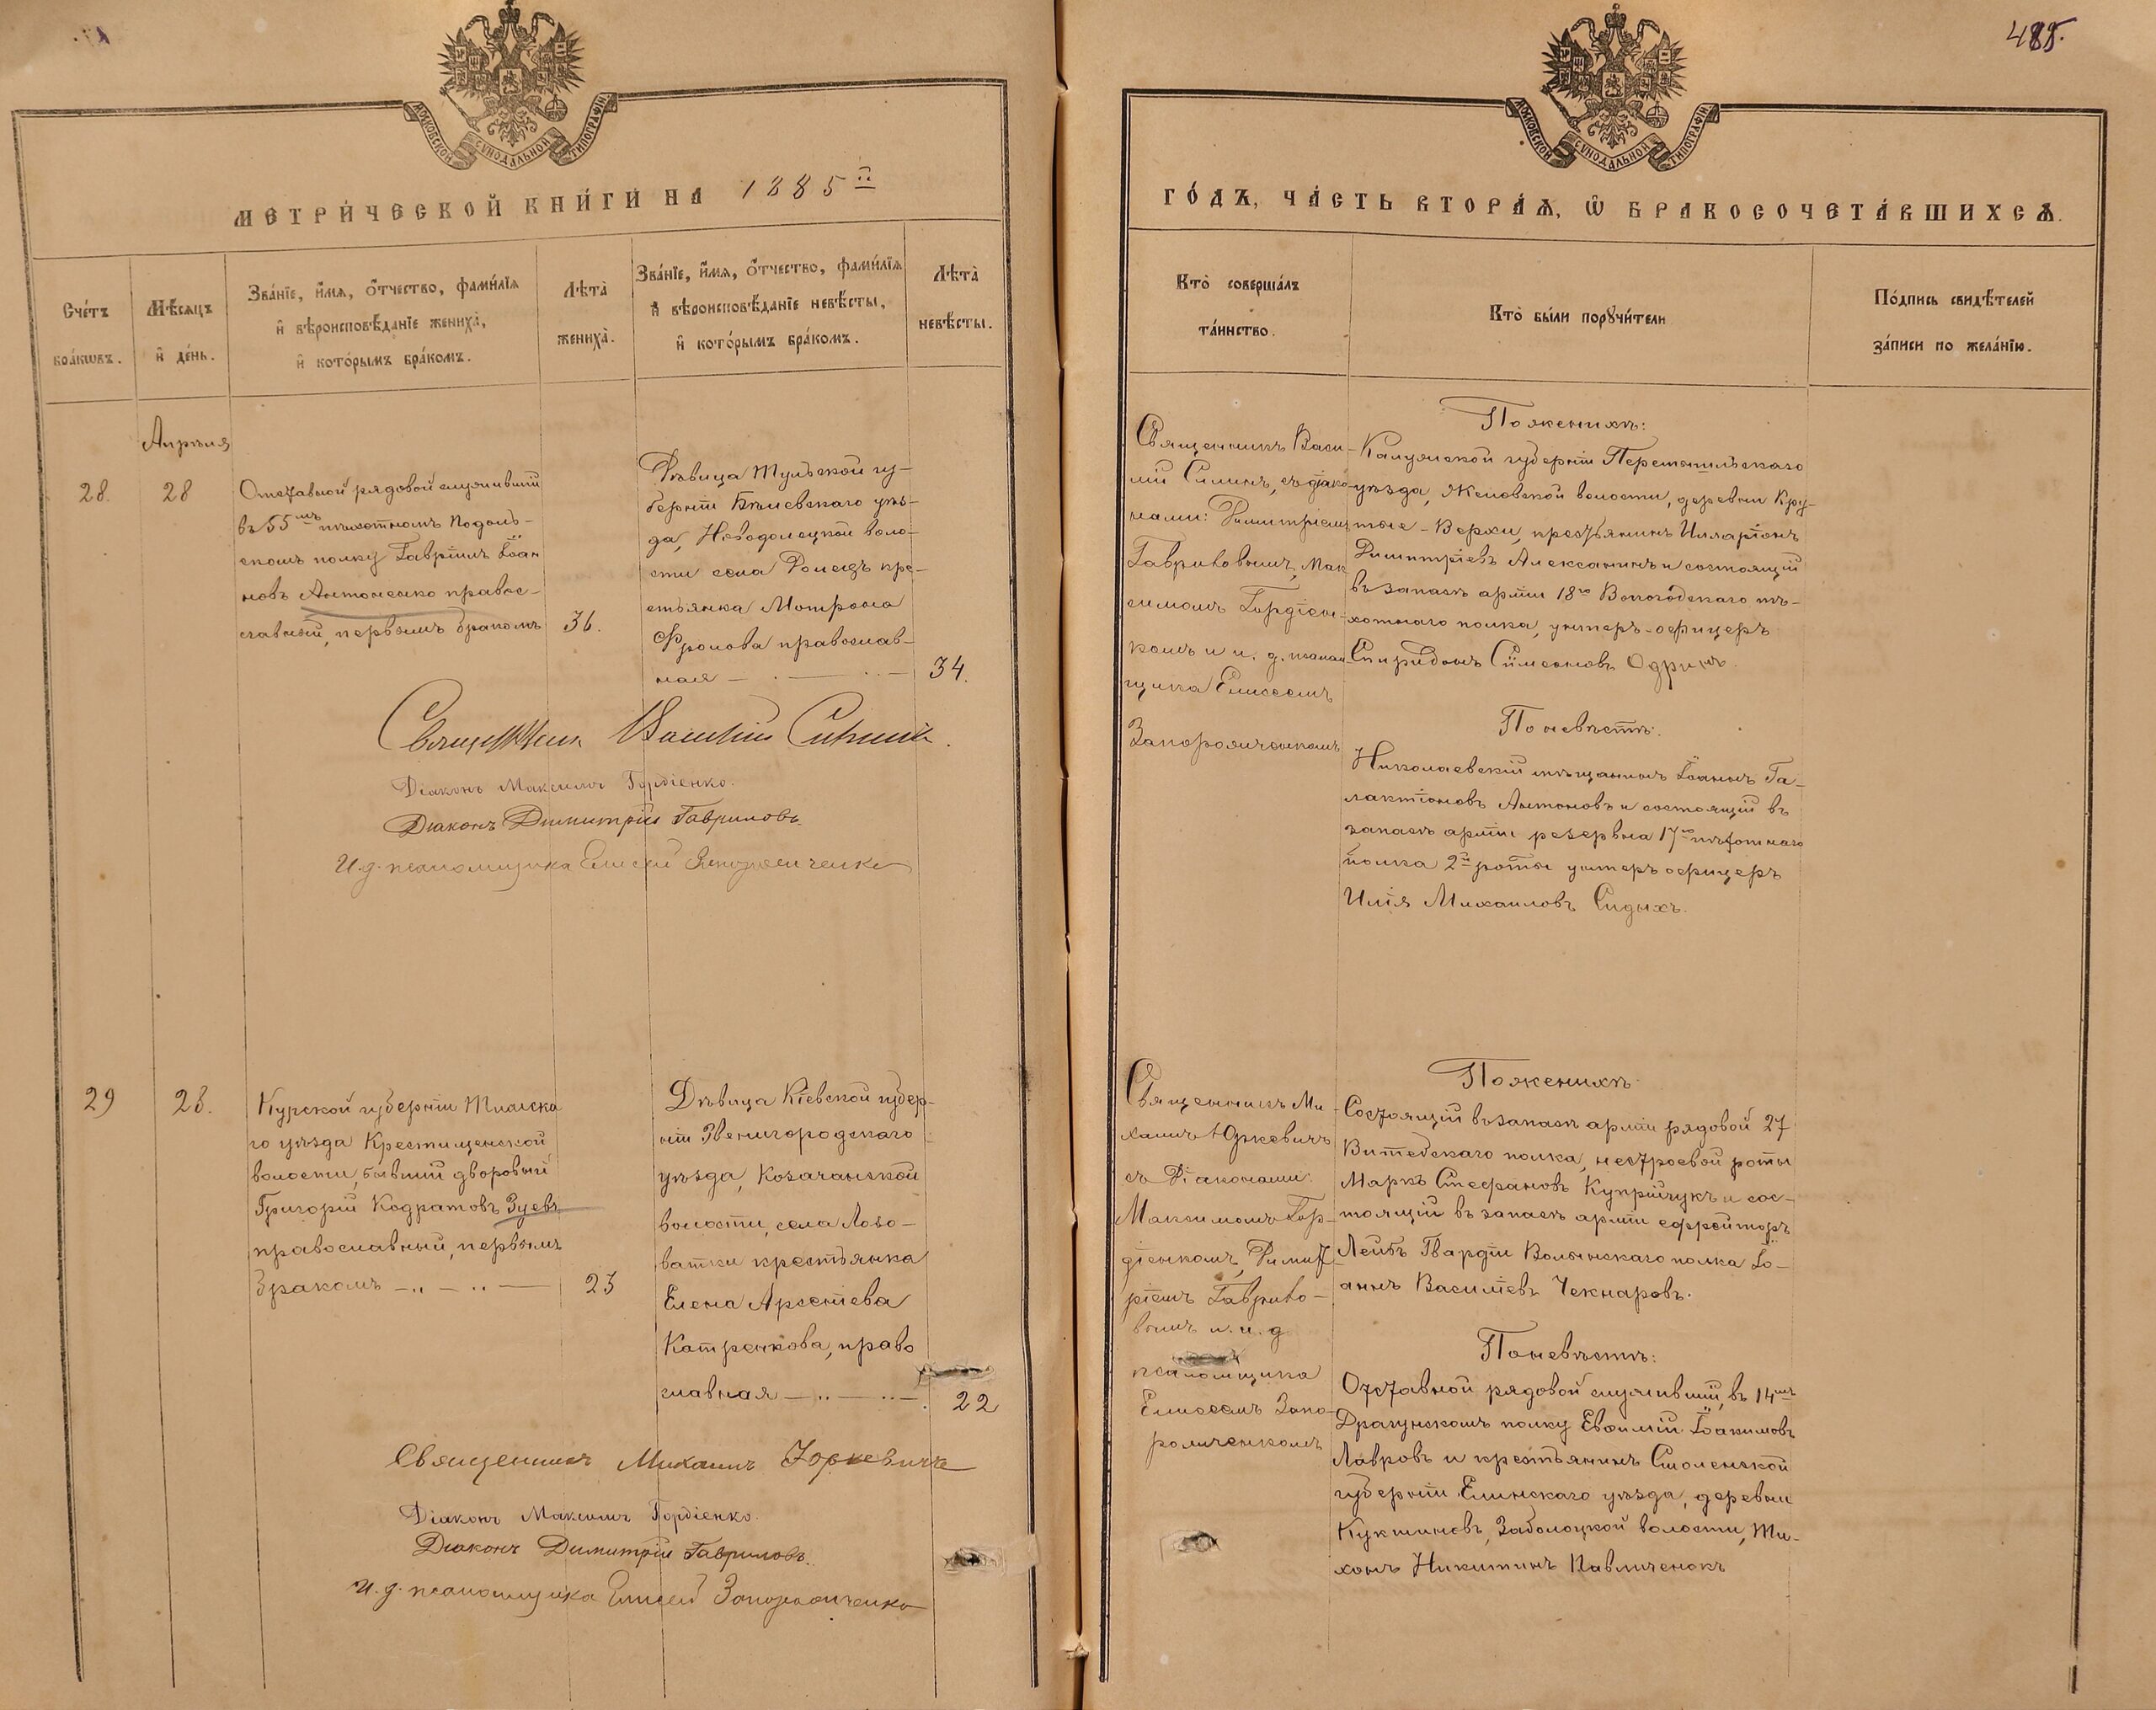 485.
МОСКОВСКОЙ СѴНОДАЛЬНОЙ ТИПОГРАФІИ
МОСКОВСКОЙ СѴНОДАЛЬНОЙ ТИПОГРАФІИ
МЕТРИ́ЧЕСКОЙ КНИ́ГИ НА 1885й
ГО́ДЪ, ЧА́СТЬ ВТОРА́Ѧ, Ѽ БРАКОСОЧЕТА́ВШИХСѦ.
Сче́тъ
бра́кѡвъ.
Мѣ́сѧцъ
и҆ де́нь.
Зва́нїе, и҆́мѧ, ѻ҆́тчество, фами́лїѧ
и҆ вѣроисповѣ́данїе жениха̀,
и҆ кото́рымъ бра́комъ.
Лѣ́та
жениха̀.
Зва́нїе, и҆́мѧ, ѻ҆́тчество, фами́лїѧ
и҆ вѣроисповѣ́данїе невѣ́сты,
и҆ кото́рымъ бра́комъ.
Лѣ́та
невѣ́сты.
Кто̀ соверша́лъ
та́инство.
Кто̀ бы́ли порꙋчи́тели
По́дпись свидѣ́телей
за́писи по жела́нїю.
Апрѣля
28.
28
Отставной рядовой служившій
въ 55мъ пѣхотномъ Подоль-
скомъ полку Гавріилъ Іоан
новъ Антоненко правос-
славный, первымъ бракомъ
36.
Дѣвица Тульской гу-
берніи Бѣлевскаго уѣз-
да, Новодолецкой воло-
сти села Долецъ кре-
стьянка Матрона
Фролова православ-
ная
34.
Священникъ Васи-
лій Силинъ, съ діако
нами: Димитріемъ
Гавриловымъ, Мак
симомъ Гордіен-
комъ и и. д. псалом
щика Елисеемъ
Запорожченкомъ
По женихѣ:
Калужской губерніи Перемышльскаго
уѣзда, Желовской волости, деревни Кру-
тые-Верхи, крестьянинъ Илларіонъ
Димитріевъ Алексанинъ и состоящій
въ запасѣ арміи 18го Вологодскаго пѣ-
хотнаго полка, унтеръ-офицеръ
Спиридонъ Сѵмеоновъ
По невѣстѣ:
Николаевскій мѣщанинъ Іоаннъ Га-
лактіоновъ Антоновъ и состоящій въ
запасѣ арміи резервна 17го пѣхотнаго
полка 2й роты унтеръ офицеръ
Илія Михаиловъ Сидыхъ.
Священникъ Василій Силинъ.
Діаконъ Максимъ Гордіенко.
Діаконъ Димитрій Гавриловъ.
И.д. псаломщика Елисей Запорожченко
29
28.
Курской губерніи Тимска
го уѣзда Крестищенской
волости, бывшій дворовый
Григорій Кодратовъ Зуевъ
православный, первымъ
бракомъ
23
Дѣвица Кіевской губер-
ніи Звенигородскаго
уѣзда, Козачанской
волости, села Лозо-
ватки крестьянка
Елена Арсеніева
Катренкова, право
славная
22
Священникъ Ми-
хаилъ Юркевичъ
съ Діаконами:
Максимомъ Гор-
діенкомъ, Димит-
ріемъ Гаврило-
вымъ и. и. д
псаломщика
Елисеемъ Запо-
рожченкомъ
По женихѣ:
Состоящій въ запасѣ арміи рядовой 27
Витебскаго полка, нестроевой роты
Маркъ Стефановъ Купрійчукъ и сос-
тоящій въ запасѣ арміи ефрейторъ
Лейбъ Гвардіи Волынскаго полка Іо-
аннъ Василіевъ Чекмаровъ.
По невѣстѣ:
Отставной рядовой служившій, въ 14мъ
Драгунскомъ полку Евѳимій Іоакимовъ
Лавровъ и крестьянинъ Смоленской
губерніи Елинскаго уѣзда, деревни
Кукшиновъ, Заболоцкой волости, Ти-
хонъ Никитинъ Павлюченокъ
Священникъ Михаилъ Юркевичъ
Діаконъ Максимъ Гордіенко.
Діаконъ Димитрій Гавриловъ.
И.д. псаломщика Елисей Запорожченко